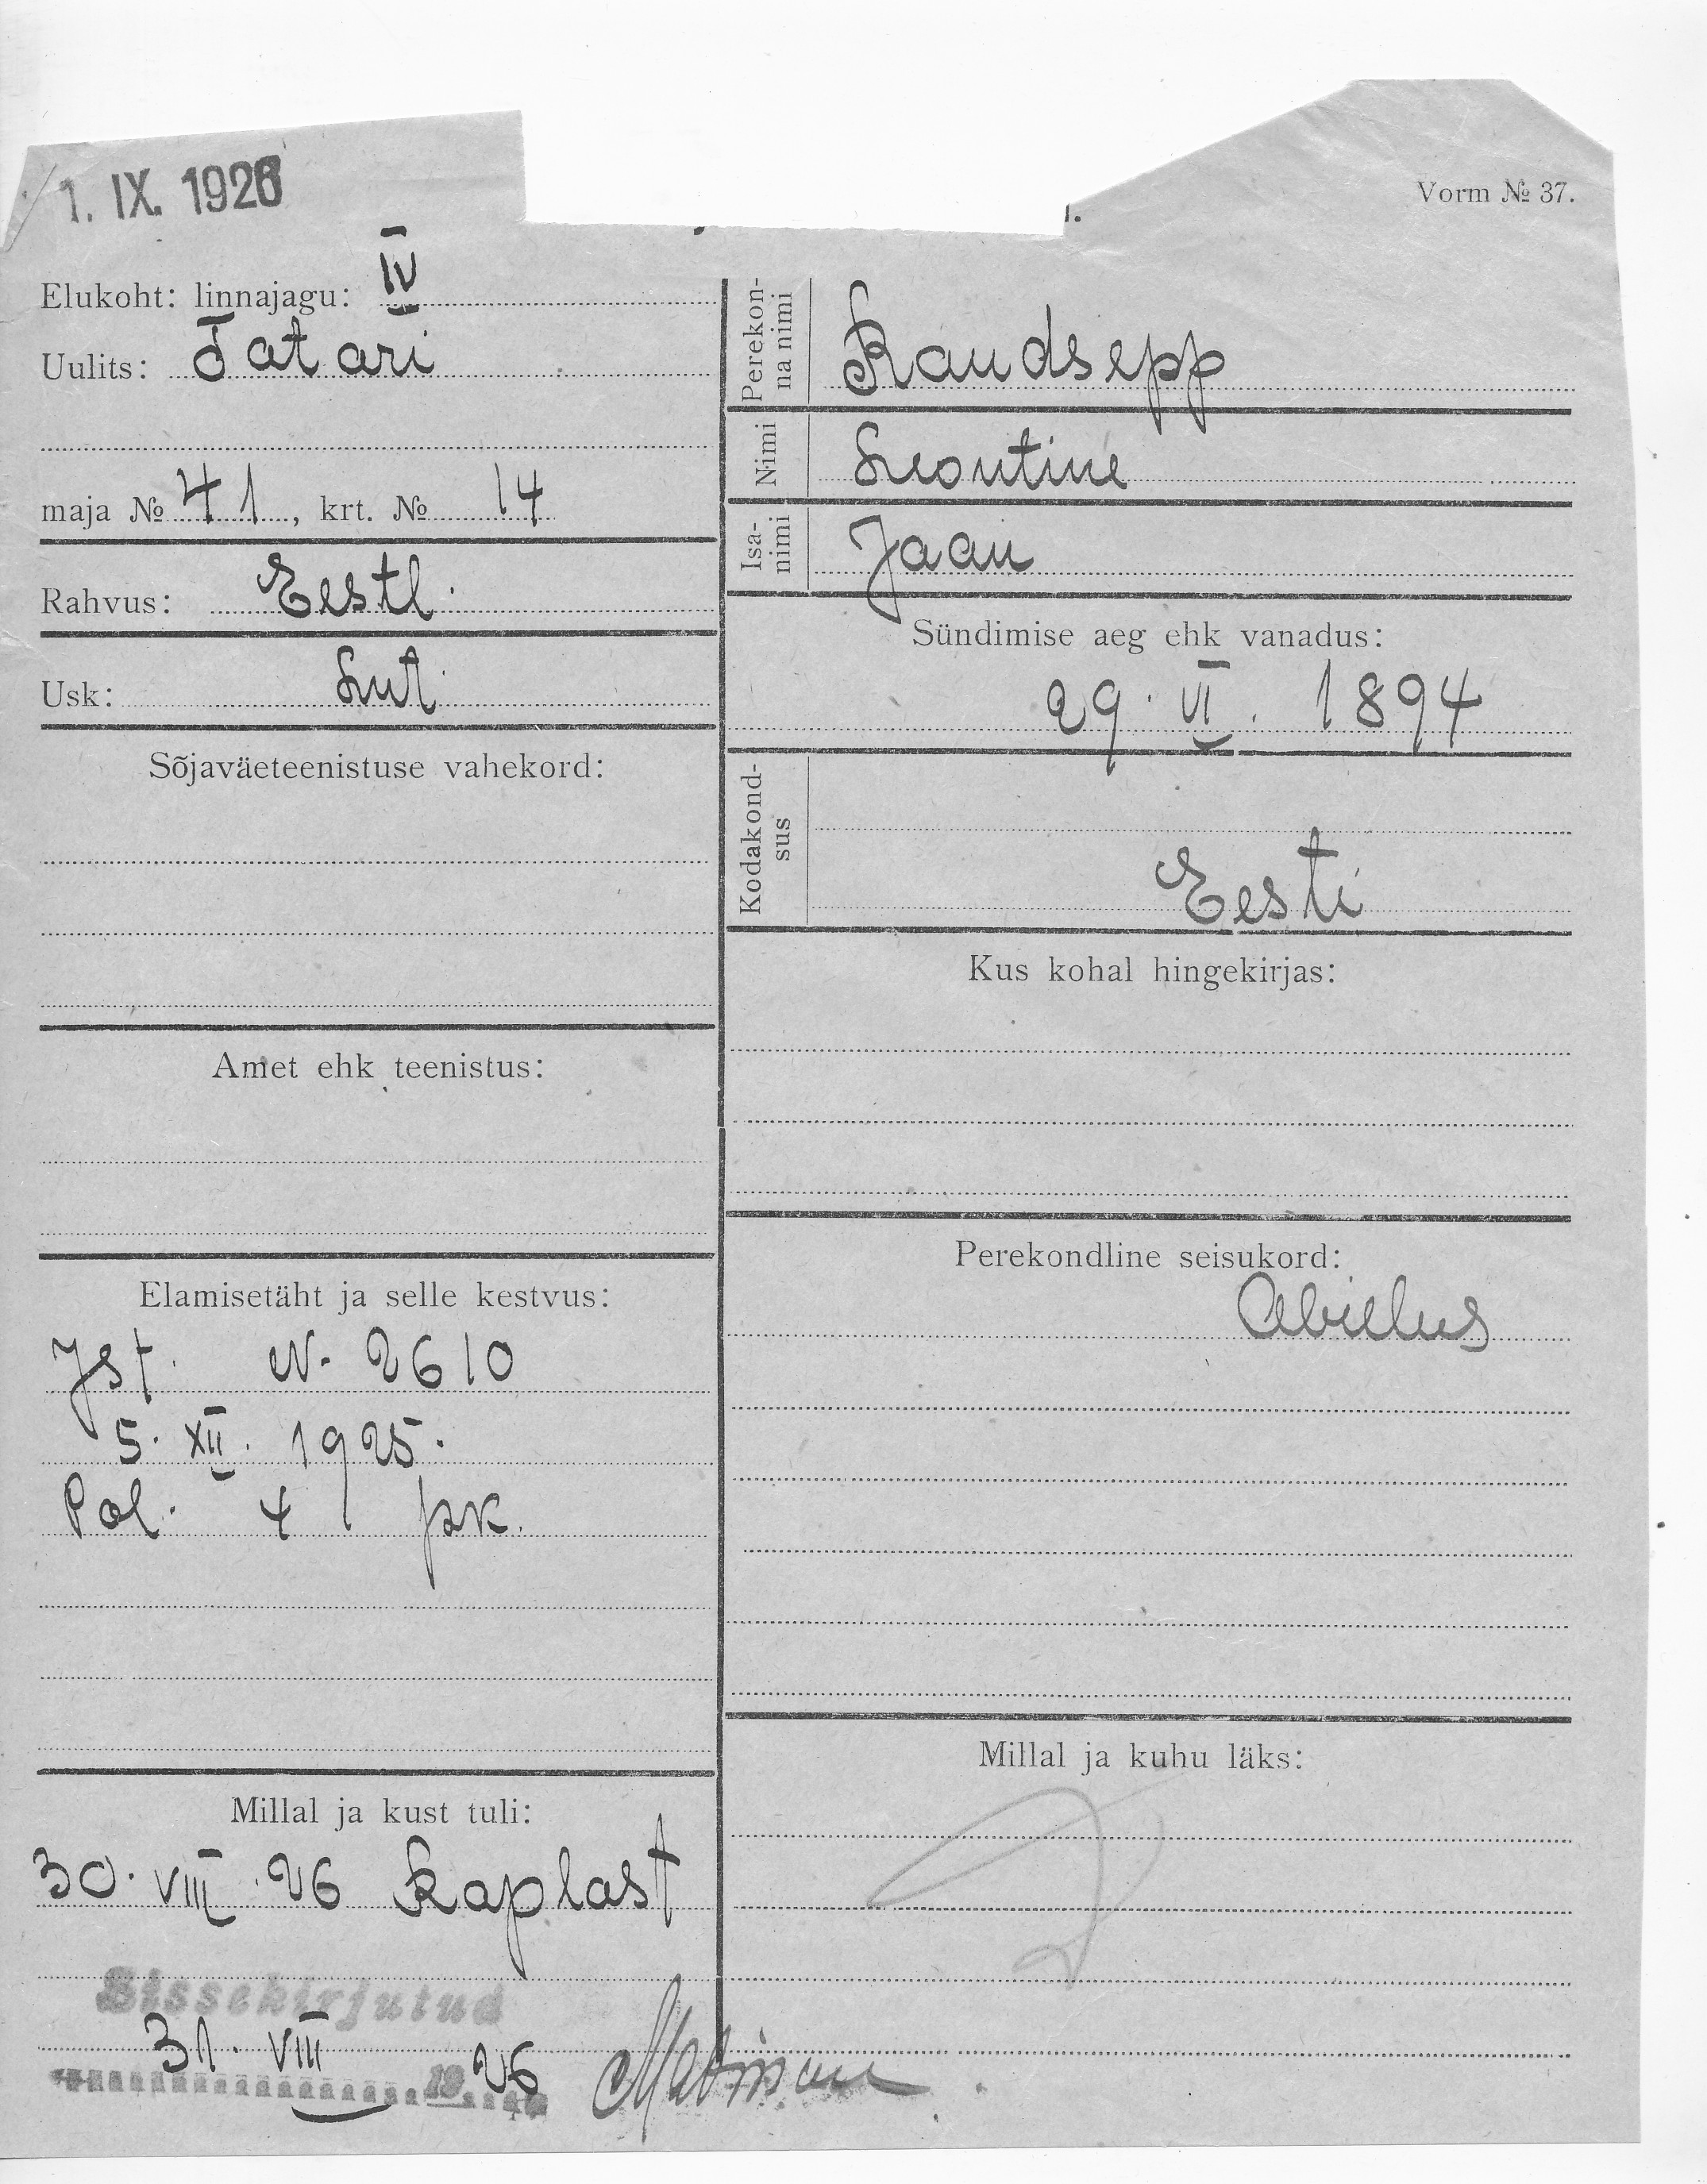 1. IX. 1926
Vorm № 37.
Elukoht: linnajagu: IV
Uulits: Tatari
maja № 41, krt. № 14
Rahvus: Eestl.
Usk: Lut.
Sõjaväeteenistuse vahekord:
Amet ehk teenistus:
Elamisetäht ja selle kestvus:
Ist. N. 2610
5. XII. 1925.
Pol. 4 jsk.
Millal ja kust tuli:
30. VIII. 26 Raplast
Sissekirjutud
31. VIII 1926
Perekonna nimi Raudsepp
Nimi Leontine
Isanimi Jaan
Sündimise aeg ehk vanadus:
29. VI. 1894
Kodakondsus
Eesti
Kus kohal hingekirjas:
Perekondline seisukord:
Abielus
Millal ja kuhu läks: